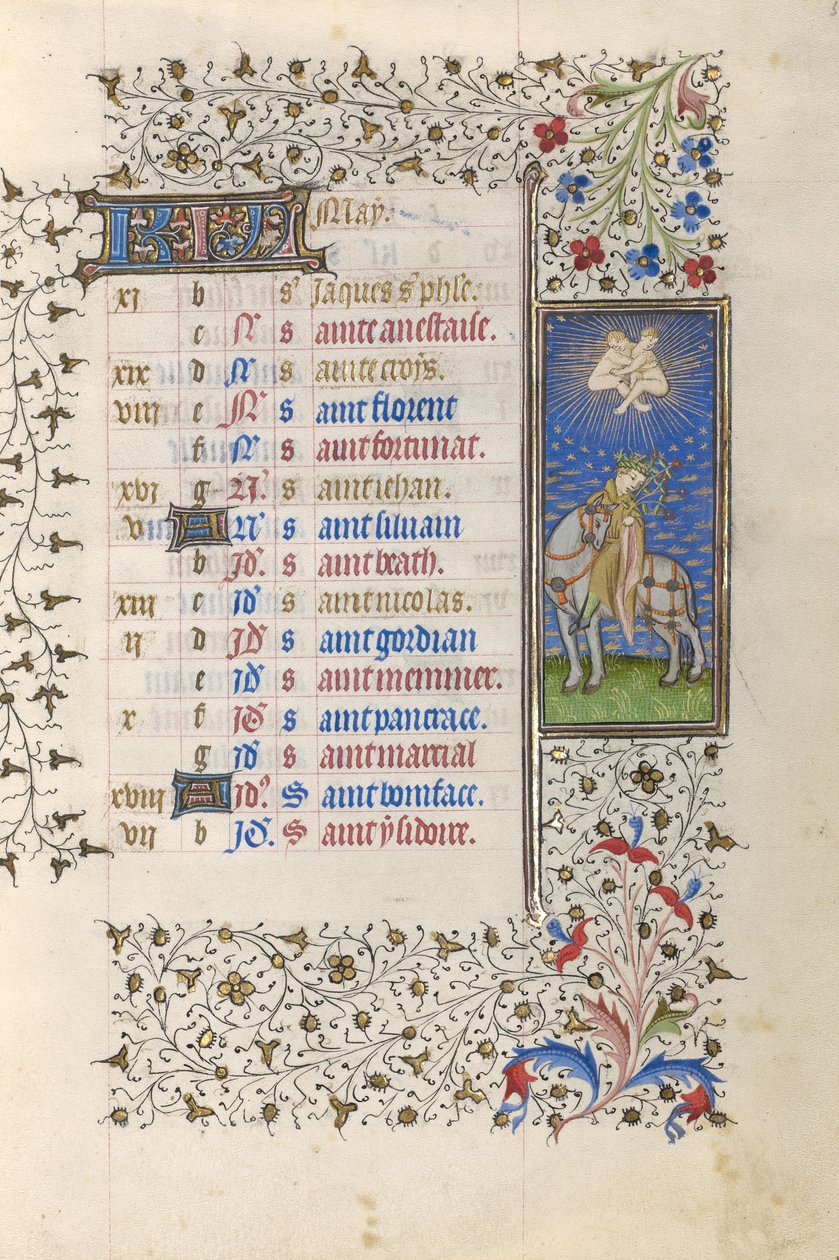 KL May.
xi b s Jaques s phle.
c N s ainte anestaise.
xix d N s ainte croys.
viii e N s aint florent
f N s aint fortunat.
xvi g N. s aint iehan.
v A N s aint siluain
b Jd. s aint beath.
xiii c Jd s aint nicolas.
ii d Jd s aint gordian
e Jd s aint memmer.
x f Jd s aint pancrace.
g Jd s aint marcial
xviii A Jd. S aint boniface.
vii b Jd. S aint ysidoire.